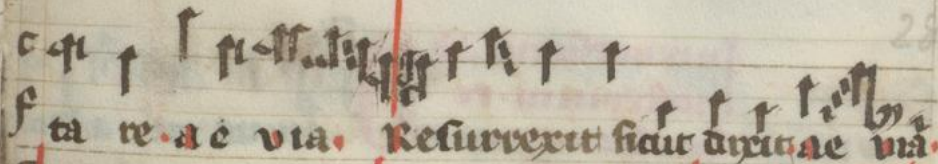 ta re. a e via. Resurrexit sicut dixit ae via.